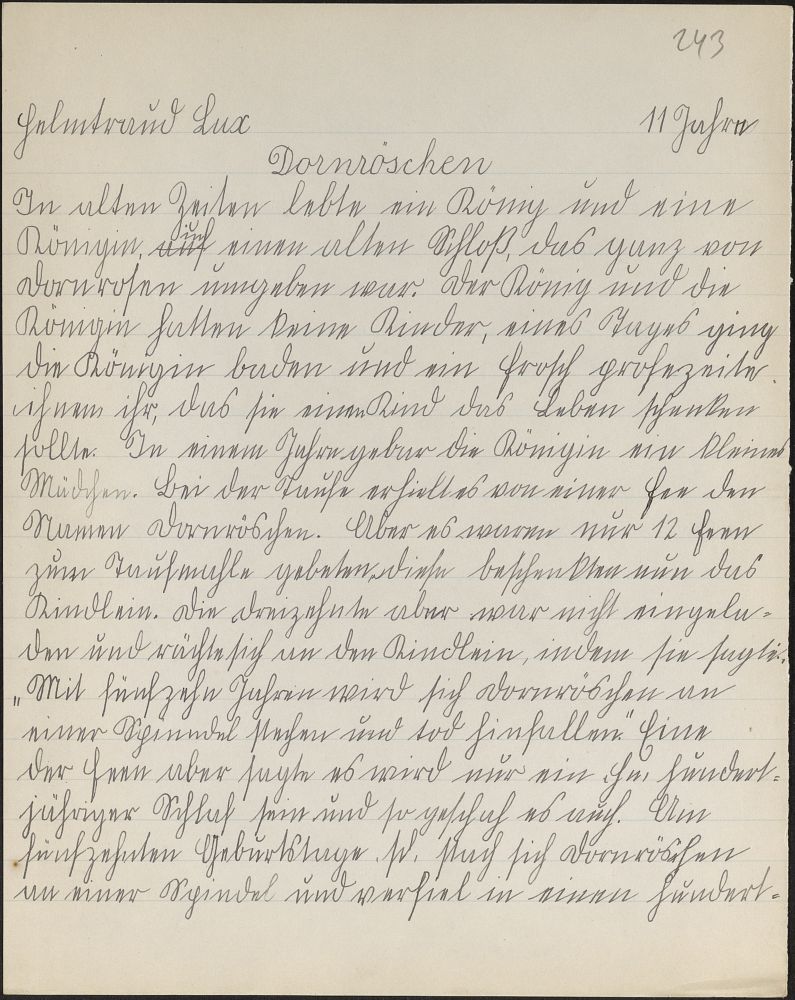 243
Helmtraud Lux 11 Jahre
Dornröschen
In alten Zeiten lebte ein König und eine
Königin, auf in einen alten Schloß, das ganz von
Dornrosen umgeben war. Der König und die
Königin hatten keine Kinder, eines Tages ging
die Königin baden und ein Frosch profezeite
ihnem ihr, das sie einen Kind das Leben schenken
sollte. In einem Jahre gebar die Königin ein kleines
Mädchen. Bei der Taufe erhielt es von einer Fee den
Namen Dornröschen. Aber es waren nur 12 Feen
zum Taufmahle gebeten, diese beschenkten nun das
Kindlein. Die dreizehnte aber war nicht eingela-
den und rächte sich an den Kindlein, indem sie sagte:
„Mit fünfzehn Jahren wird sich Dornröschen an
einer Spinndel stechen und tod hinfallen." Eine
der Feen aber sagte es wird nur ein hundert-
jähriger Schlaf sein und so geschah es auch. Am
fünfzehnten Geburtstage stach sich Dornröschen
an einer Spindel und verfiel in einen hundert-